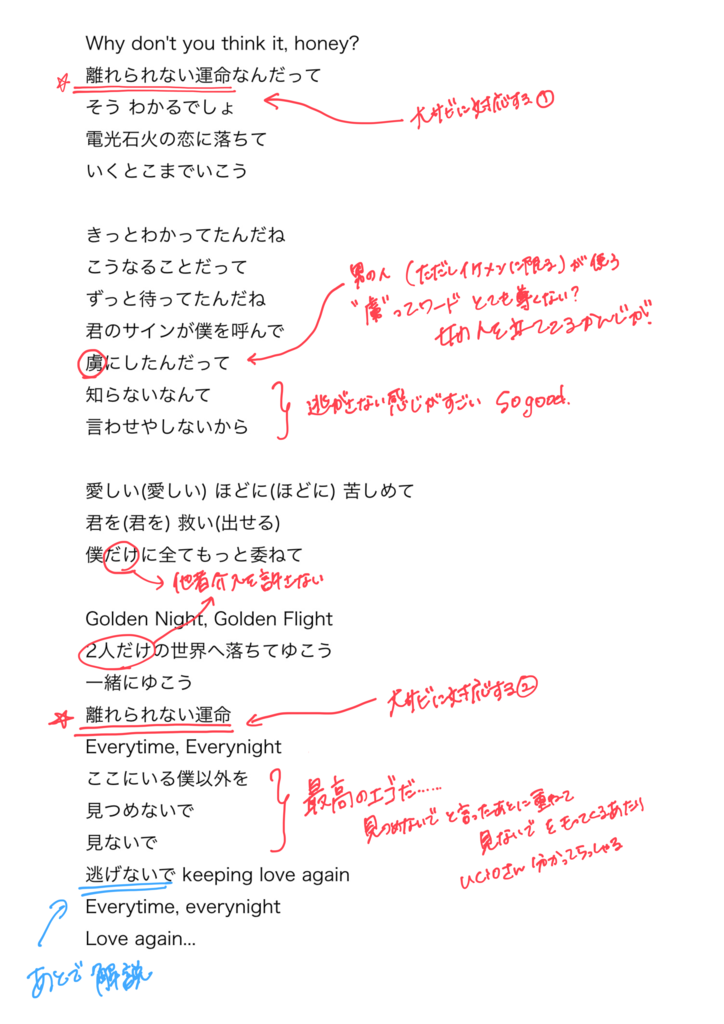 Why don't you think it, honey?
☆ 離れられない運命なんだって
そう わかるでしょ
大サビに対応する①
電光石火の恋に落ちて
いくとこまでいこう
きっとわかってたんだね
こうなることだって
ずっと待ってたんだね
君のサインが僕を呼んで
虜にしたんだって
男の人(ただしイケメンに限る)が使う
"虜"ってワード とても尊くない?
女の人を
知らないなんて
言わせやしないから
逃がさない感じがすごい So good.
愛しい(愛しい) ほどに(ほどに) 苦しめて
君を(君を) 救い(出せる)
僕だけに全てもっと委ねて
→ 他者介入を許さない
Golden Night, Golden Flight
2人だけの世界へ落ちてゆこう
一緒にゆこう
☆ 離れられない運命
大サビに対応する②
Everytime, Everynight
ここにいる僕以外を
見つめないで
見ないで
最高のエゴだ……
見つめないで と言ったあとに重ねて
見ないで をもってくるあたり
さん 分かってらっしゃる
逃げないで keeping love again
Everytime, everynight
Love again...
あとで 解説